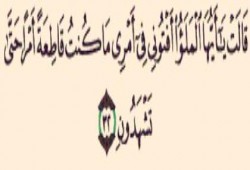 قَالَتْ يَٰٓأَيُّهَا ٱلْمَلَؤُا۟ أَفْتُونِى فِىٓ أَمْرِى مَا كُنتُ قَاطِعَةً أَمْرًا حَتَّىٰ
تَشْهَدُونِ ٣٢